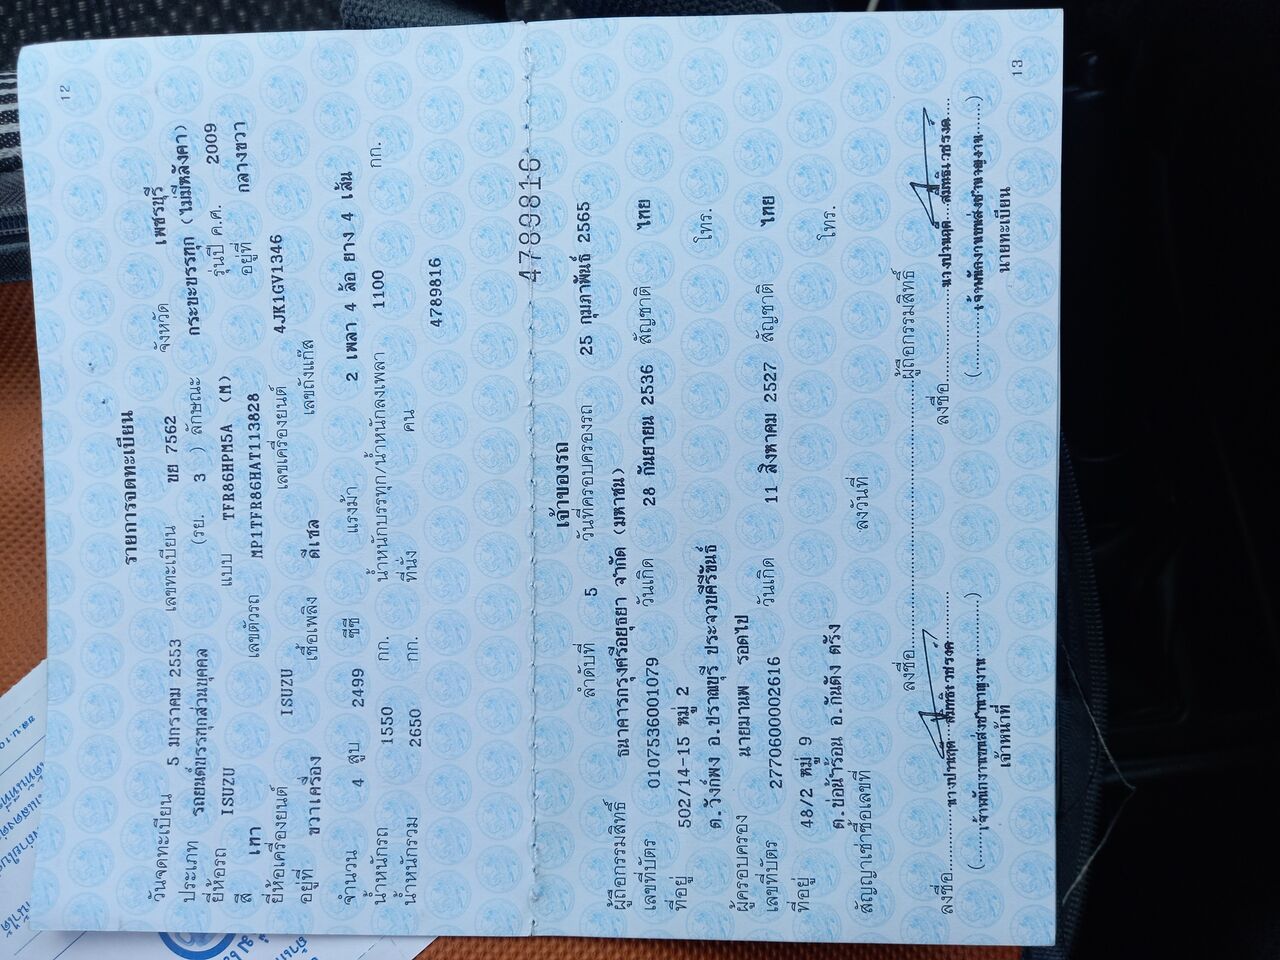 12
รายการจดทะเบียน
วันจดทะเบียน 5 มกราคม 2553 เลขทะเบียน ขย 7562 จังหวัด เพชรบุรี
ประเภท รถยนต์บรรทุกส่วนบุคคล (รย. 3 ) ลักษณะ กระบะบรรทุก (ไม่มีหลังคา)
ยี่ห้อรถ ISUZU แบบ TFR86HPM5A (M) รุ่นปี ค.ศ. 2009
สี เทา เลขตัวรถ MP1TFR86HAT113828 อยู่ที่ กลางขวา
ยี่ห้อเครื่องยนต์ ISUZU เลขเครื่องยนต์ 4JK1GV1346
อยู่ที่ ขวาเครื่อง เชื้อเพลิง ดีเซล เลขถังแก๊ส
จำนวน 4 สูบ 2499 ซีซี แรงม้า 2 เพลา 4 ล้อ ยาง 4 เส้น
น้ำหนักรถ 1550 กก. น้ำหนักบรรทุก/น้ำหนักลงเพลา 1100 กก.
น้ำหนักรวม 2650 กก. ที่นั่ง คน
4789816
4789816
เจ้าของรถ
ลำดับที่ 5 วันที่ครอบครองรถ 25 กุมภาพันธ์ 2565
ผู้ถือกรรมสิทธิ์ ธนาคารกรุงศรีอยุธยา จำกัด (มหาชน)
เลขที่บัตร 0107536001079 วันเกิด 28 กันยายน 2536 สัญชาติ ไทย
ที่อยู่ 502/14-15 หมู่ 2 โทร.
ต.วังก์พง อ.ปราณบุรี ประจวบคีรีขันธ์
ผู้ครอบครอง นายมานพ รอดไป
เลขที่บัตร 2770600002616 วันเกิด 11 สิงหาคม 2527 สัญชาติ ไทย
ที่อยู่ 48/2 หมู่ 9 โทร.
ต.บ่อน้ำร้อน อ.กันตัง ตรัง
สัญญาเช่าซื้อเลขที่ ลงวันที่
ลงชื่อ ผู้ถือกรรมสิทธิ์
ลงชื่อ ลงชื่อ
(เจ้าพนักงานขนส่งชำนาญงาน) (เจ้าพนักงานขนส่งชำนาญงาน)
เจ้าหน้าที่ นายทะเบียน
13